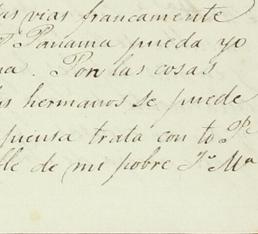 vias francamente
Panama pueda yo
Por las cosas
hermanos se puede
trata con to
de mi pobre J.º M.ª